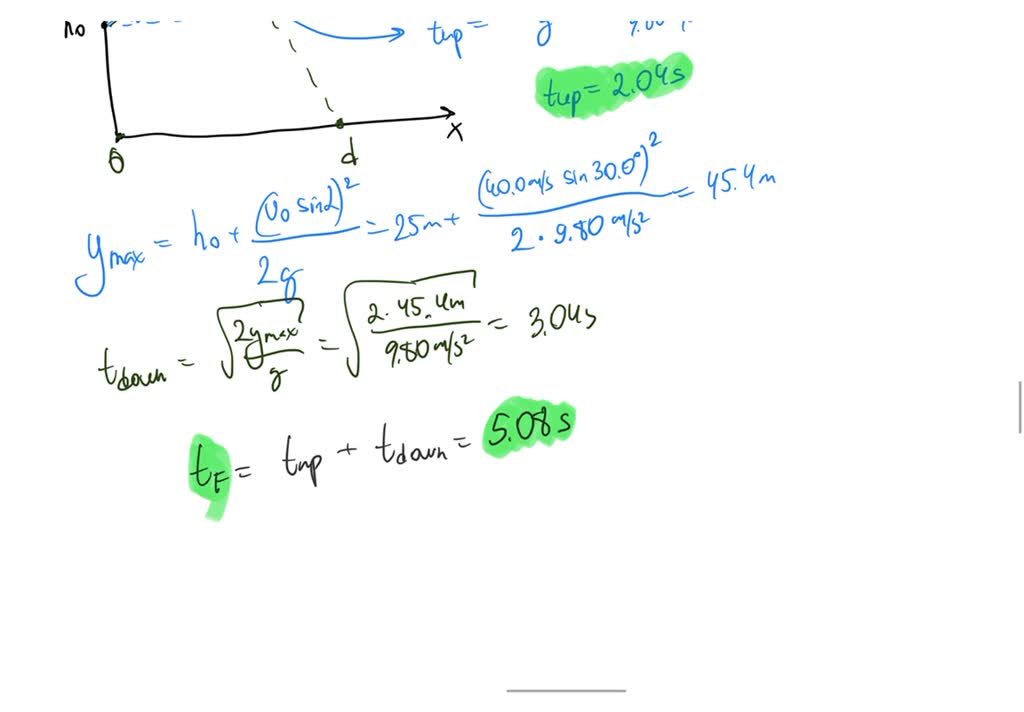 h₀
t_up = g
t_up = 2.04s
x
0
d
y_max = h₀ + (v₀ sinα)² / 2g = 25m + (40.0m/s sin30.0°)² / 2 · 9.80 m/s² = 45.4m
t_down = √(2y_max / g) = √(2 · 45.4m / 9.80 m/s²) = 3.04s
t_F = t_up + t_down = 5.08s